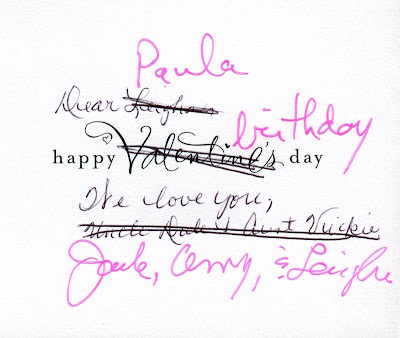 Paula
Dear Leigha
birthday
happy Valentine's day
We love you,
Uncle & Aunt Vickie
& Leigha